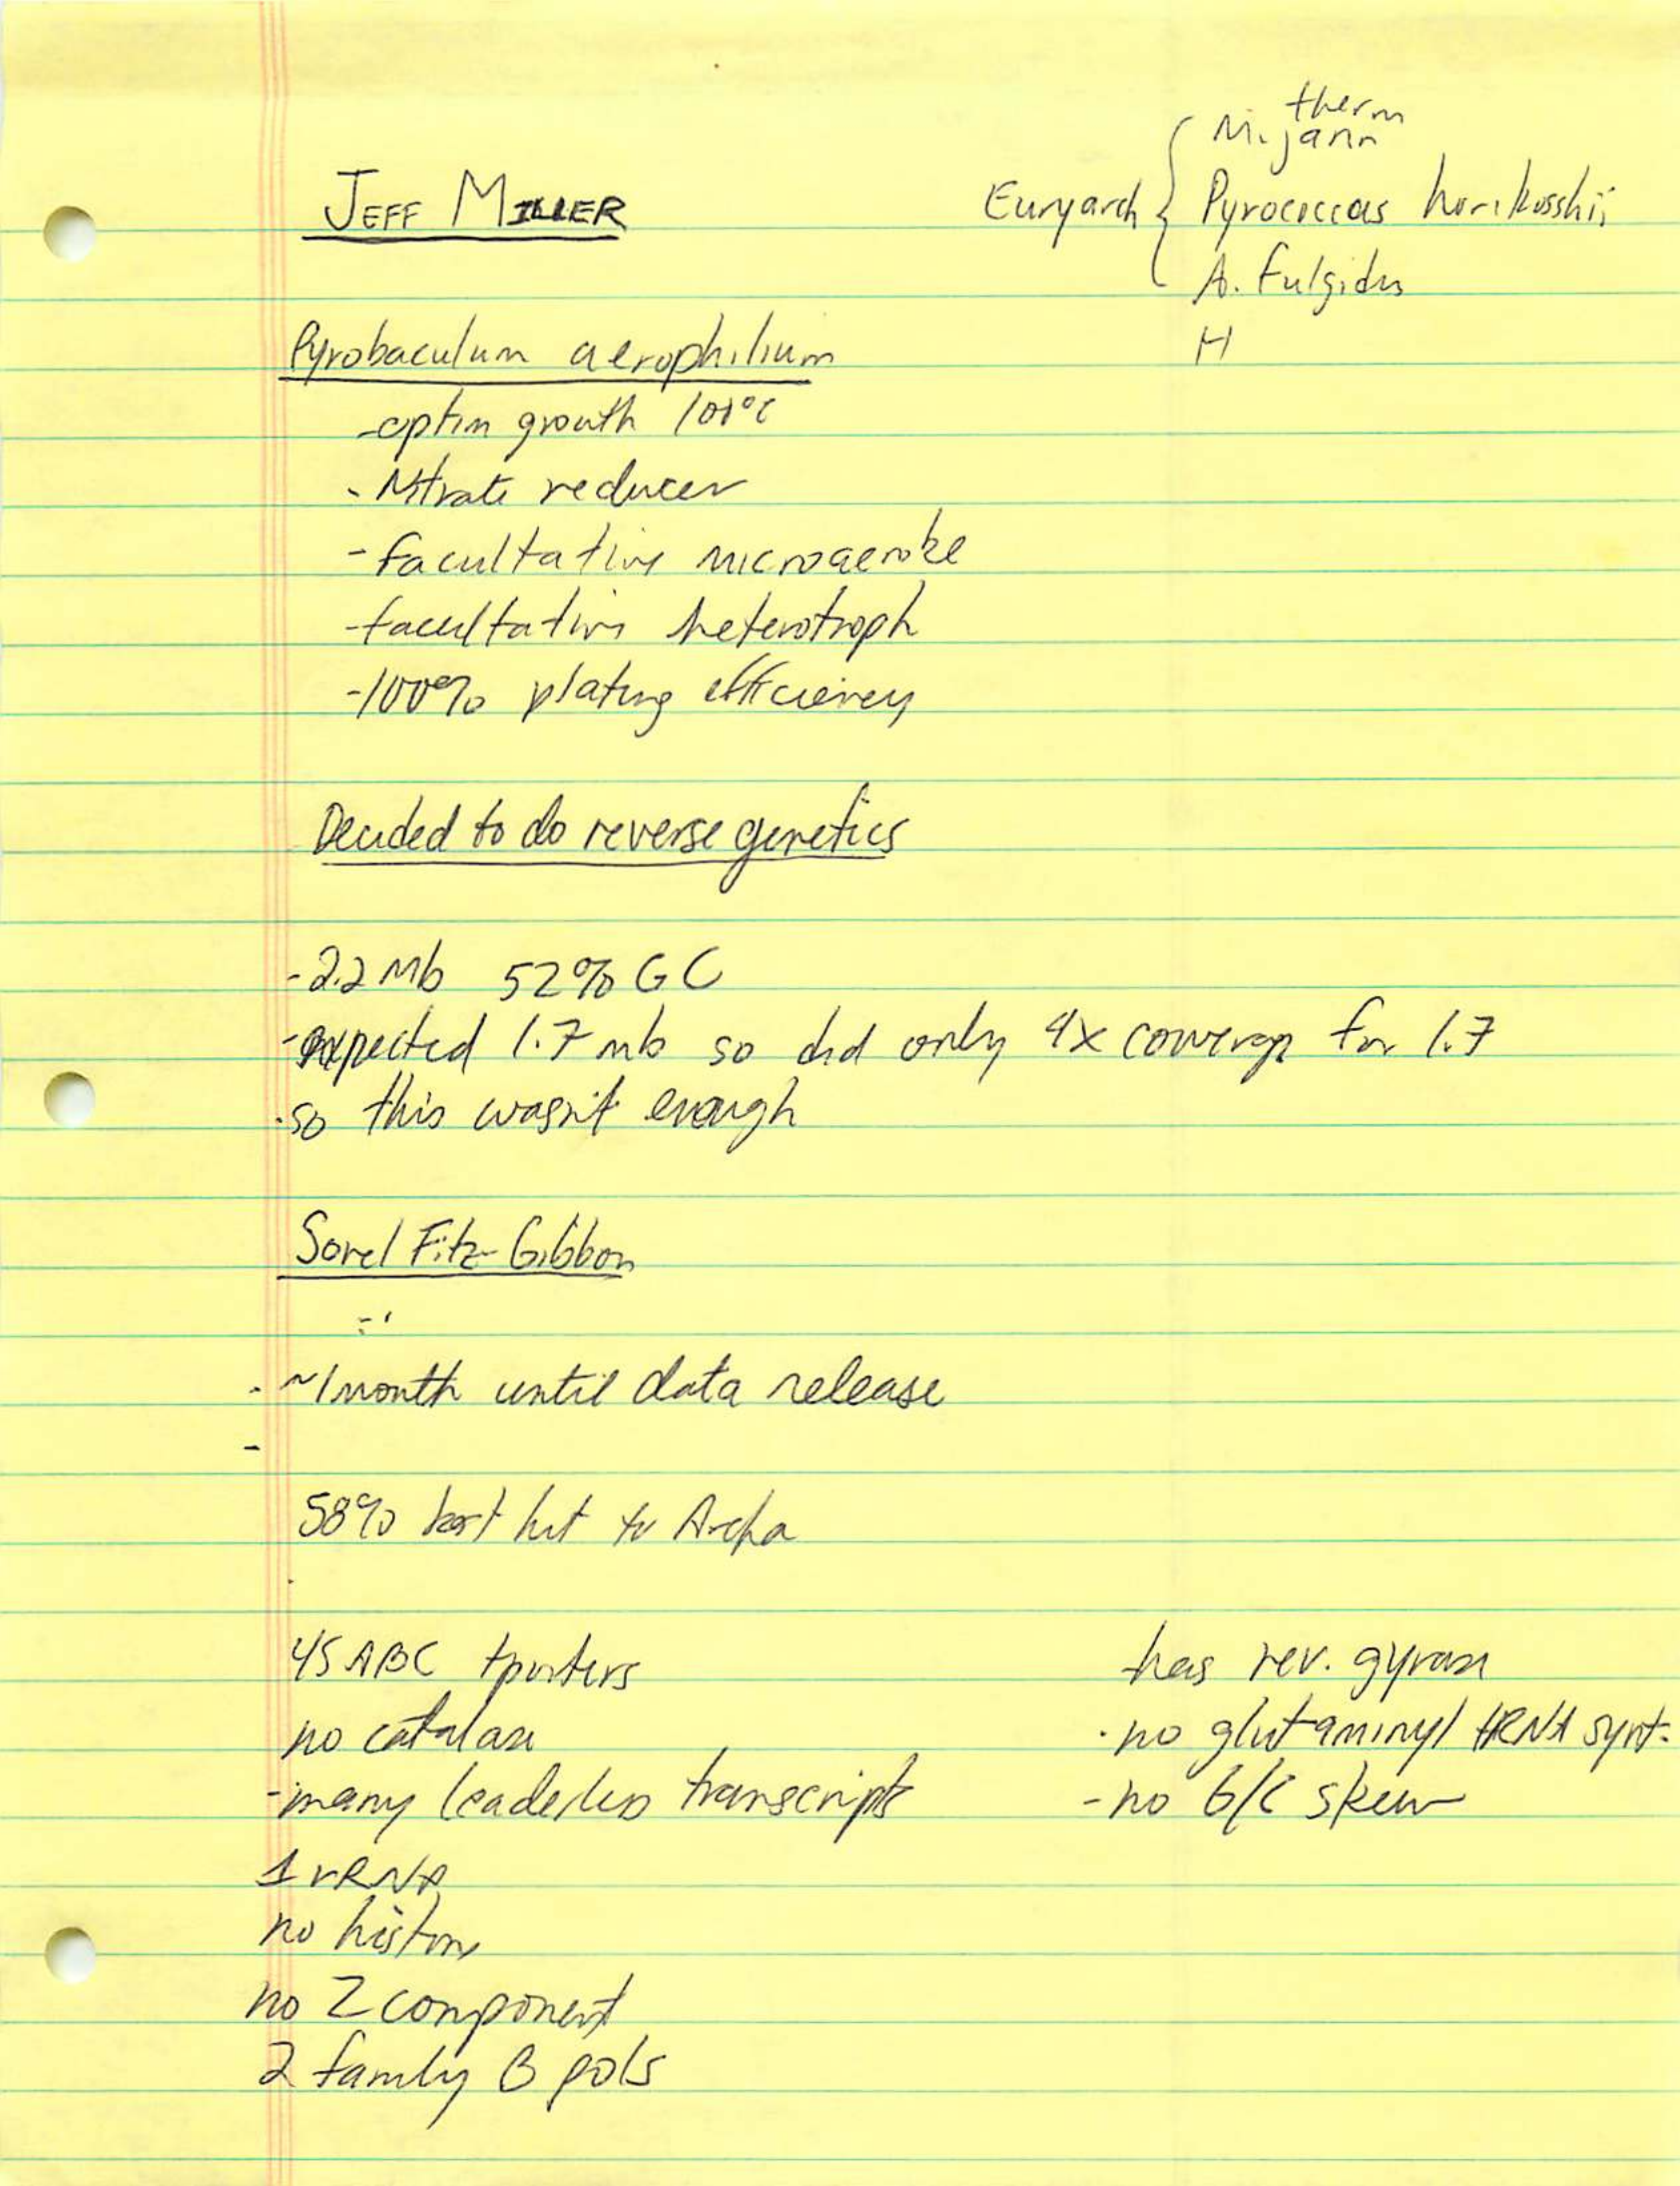 JEFF MILLER
therm
M. jann
Euryarch { Pyrococcus horikosshii
A. Fulgidus
H
Pyrobaculum aerophilium
- optim growth 100°C
- Nitrate reducer
- facultative microaerobe
- facultative heterotroph
- 100% plating efficiency
Decided to do reverse genetics
- 2.2 Mb 52% GC
- expected 1.7 mb so did only 4x coverage for 1.7
- so this wasn't enough
Sorel Fitz-Gibbon
- ~1 month until data release
-
58% best hit to Archa
45 ABC tporters
no catalase
- many leaderless transcripts
1 rRNA
no histone
no 2 component
2 family B pols
has rev. gyrase
- no glutaminyl tRNA synt.
- no G/C skew